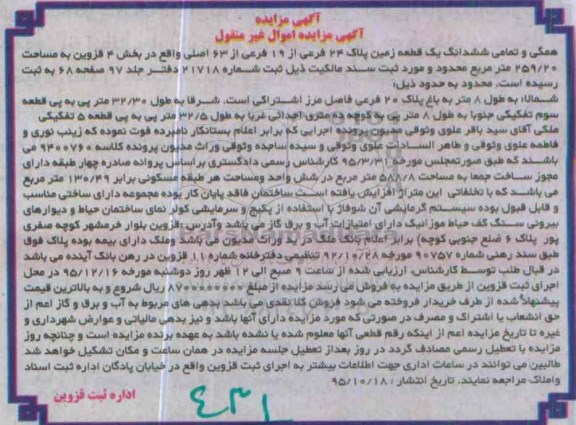 آگهی مزایده
آگهی مزایده اموال غیر منقول
همگی و تمامی ششدانگ یک قطعه زمین پلاک ۲۴ فرعی از ۱۹ فرعی از ۶۳ اصلی واقع در بخش ۴ قزوین به مساحت
۲۵۹/۲۰ متر مربع محدود و مورد ثبت سند مالکیت ذیل ثبت شماره ۲۱۷۱۸ دفتر جلد ۹۷ صفحه ۶۸ به ثبت
رسیده است. محدود به حدود ذیل:
شمالا: به طول ۸ متر به باغ پلاک ۲۰ فرعی فاصل مرز اشتراکی است. شرقا به طول ۳۲/۳۰ متر پی به پی قطعه
سوم تفکیکی جنوبا به طول ۸ متر پی به کوچه ۶ متری احداثی غربا به طول ۳۲/۵ متر پی به پی قطعه ۵ تفکیکی
ملکی آقای سید باقر علوی وثوقی مدیون پرونده اجرایی که برابر اعلام بستانکار نامبرده فوت نموده که زینب نوری و
فاطمه علوی وثوقی و طاهر السادات علوی وثوقی و سیده ساجده وثوقی وراث مدیون پرونده کلاسه ۹۴۰۰۷۶۰ می
باشند که طبق صورتمجلس مورخه ۹۵/۳/۳۱ کارشناس رسمی دادگستری براساس پروانه صادره چهار طبقه دارای
مجوز ساخت جمعا به مساحت ۵۸۸/۸ متر مربع در شش واحد ومساحت هر طبقه مسکونی برابر ۱۳۰/۴۹ متر مربع
می باشد که با تخلفاتی این متراژ افزایش یافته است ساختمان فاقد پایان کار بوده مجموعه دارای ساختی مناسب
و قابل قبول بوده سیستم گرمایشی آن شوفاژ با استفاده از پکیج و سرمایشی کولر نمای ساختمان حیاط و دیوارهای
بیرونی سنگ کف حیاط موزائیک دارای امتیازات آب و برق گاز می باشد وآدرس: قزوین بلوار خرمشهر کوچه صفری
پور پلاک ۶ ضلع جنوبی کوچه) برابر اعلام بانک ملک در ید وراث مدیون می باشد وملک دارای بیمه بوده پلاک فوق
طبق سند رهنی شماره ۹۰۷۵۷ مورخه ۹۲/۱۰/۲۸ تنظیمی دفترخانه شماره ۱۱ قزوین در رهن بانک آینده می باشد
در قبال طلب توسط کارشناس، ارزیابی شده از ساعت ۹ صبح الی ۱۲ ظهر روز دوشنبه مورخه ۹۵/۱۲/۱۶ در محل
اجرای ثبت قزوین از طریق مزایده به فروش می رسد مزایده از مبلغ ریال شروع و به بالاترین قیمت
پیشنهاد شده از طرف خریدار فروخته می شود فروش کلا نقدی می باشد بدهی های مربوط به آب و برق و گاز اعم از
حق انشعاب یا اشتراک و مصرف در صورتی که مورد مزایده دارای آنها باشد و نیز بدهی مالیاتی و عوارض شهرداری و
غیره تا تاریخ مزایده اعم از اینکه رقم قطعی آنها معلوم شده یا نشده باشد به عهده برنده مزایده است و چنانچه روز
مزایده با تعطیل رسمی مصادف گردد در روز بعداز تعطیل جلسه مزایده در همان ساعت و مکان تشکیل خواهد شد
طالبین می توانند در ساعات اداری جهت اطلاعات بیشتر به اجرای ثبت قزوین واقع در خیابان پادگان اداره ثبت اسناد
واملاک مراجعه نمایند. تاریخ انتشار: ۹۵/۱۰/۱۸
اداره ثبت قزوین